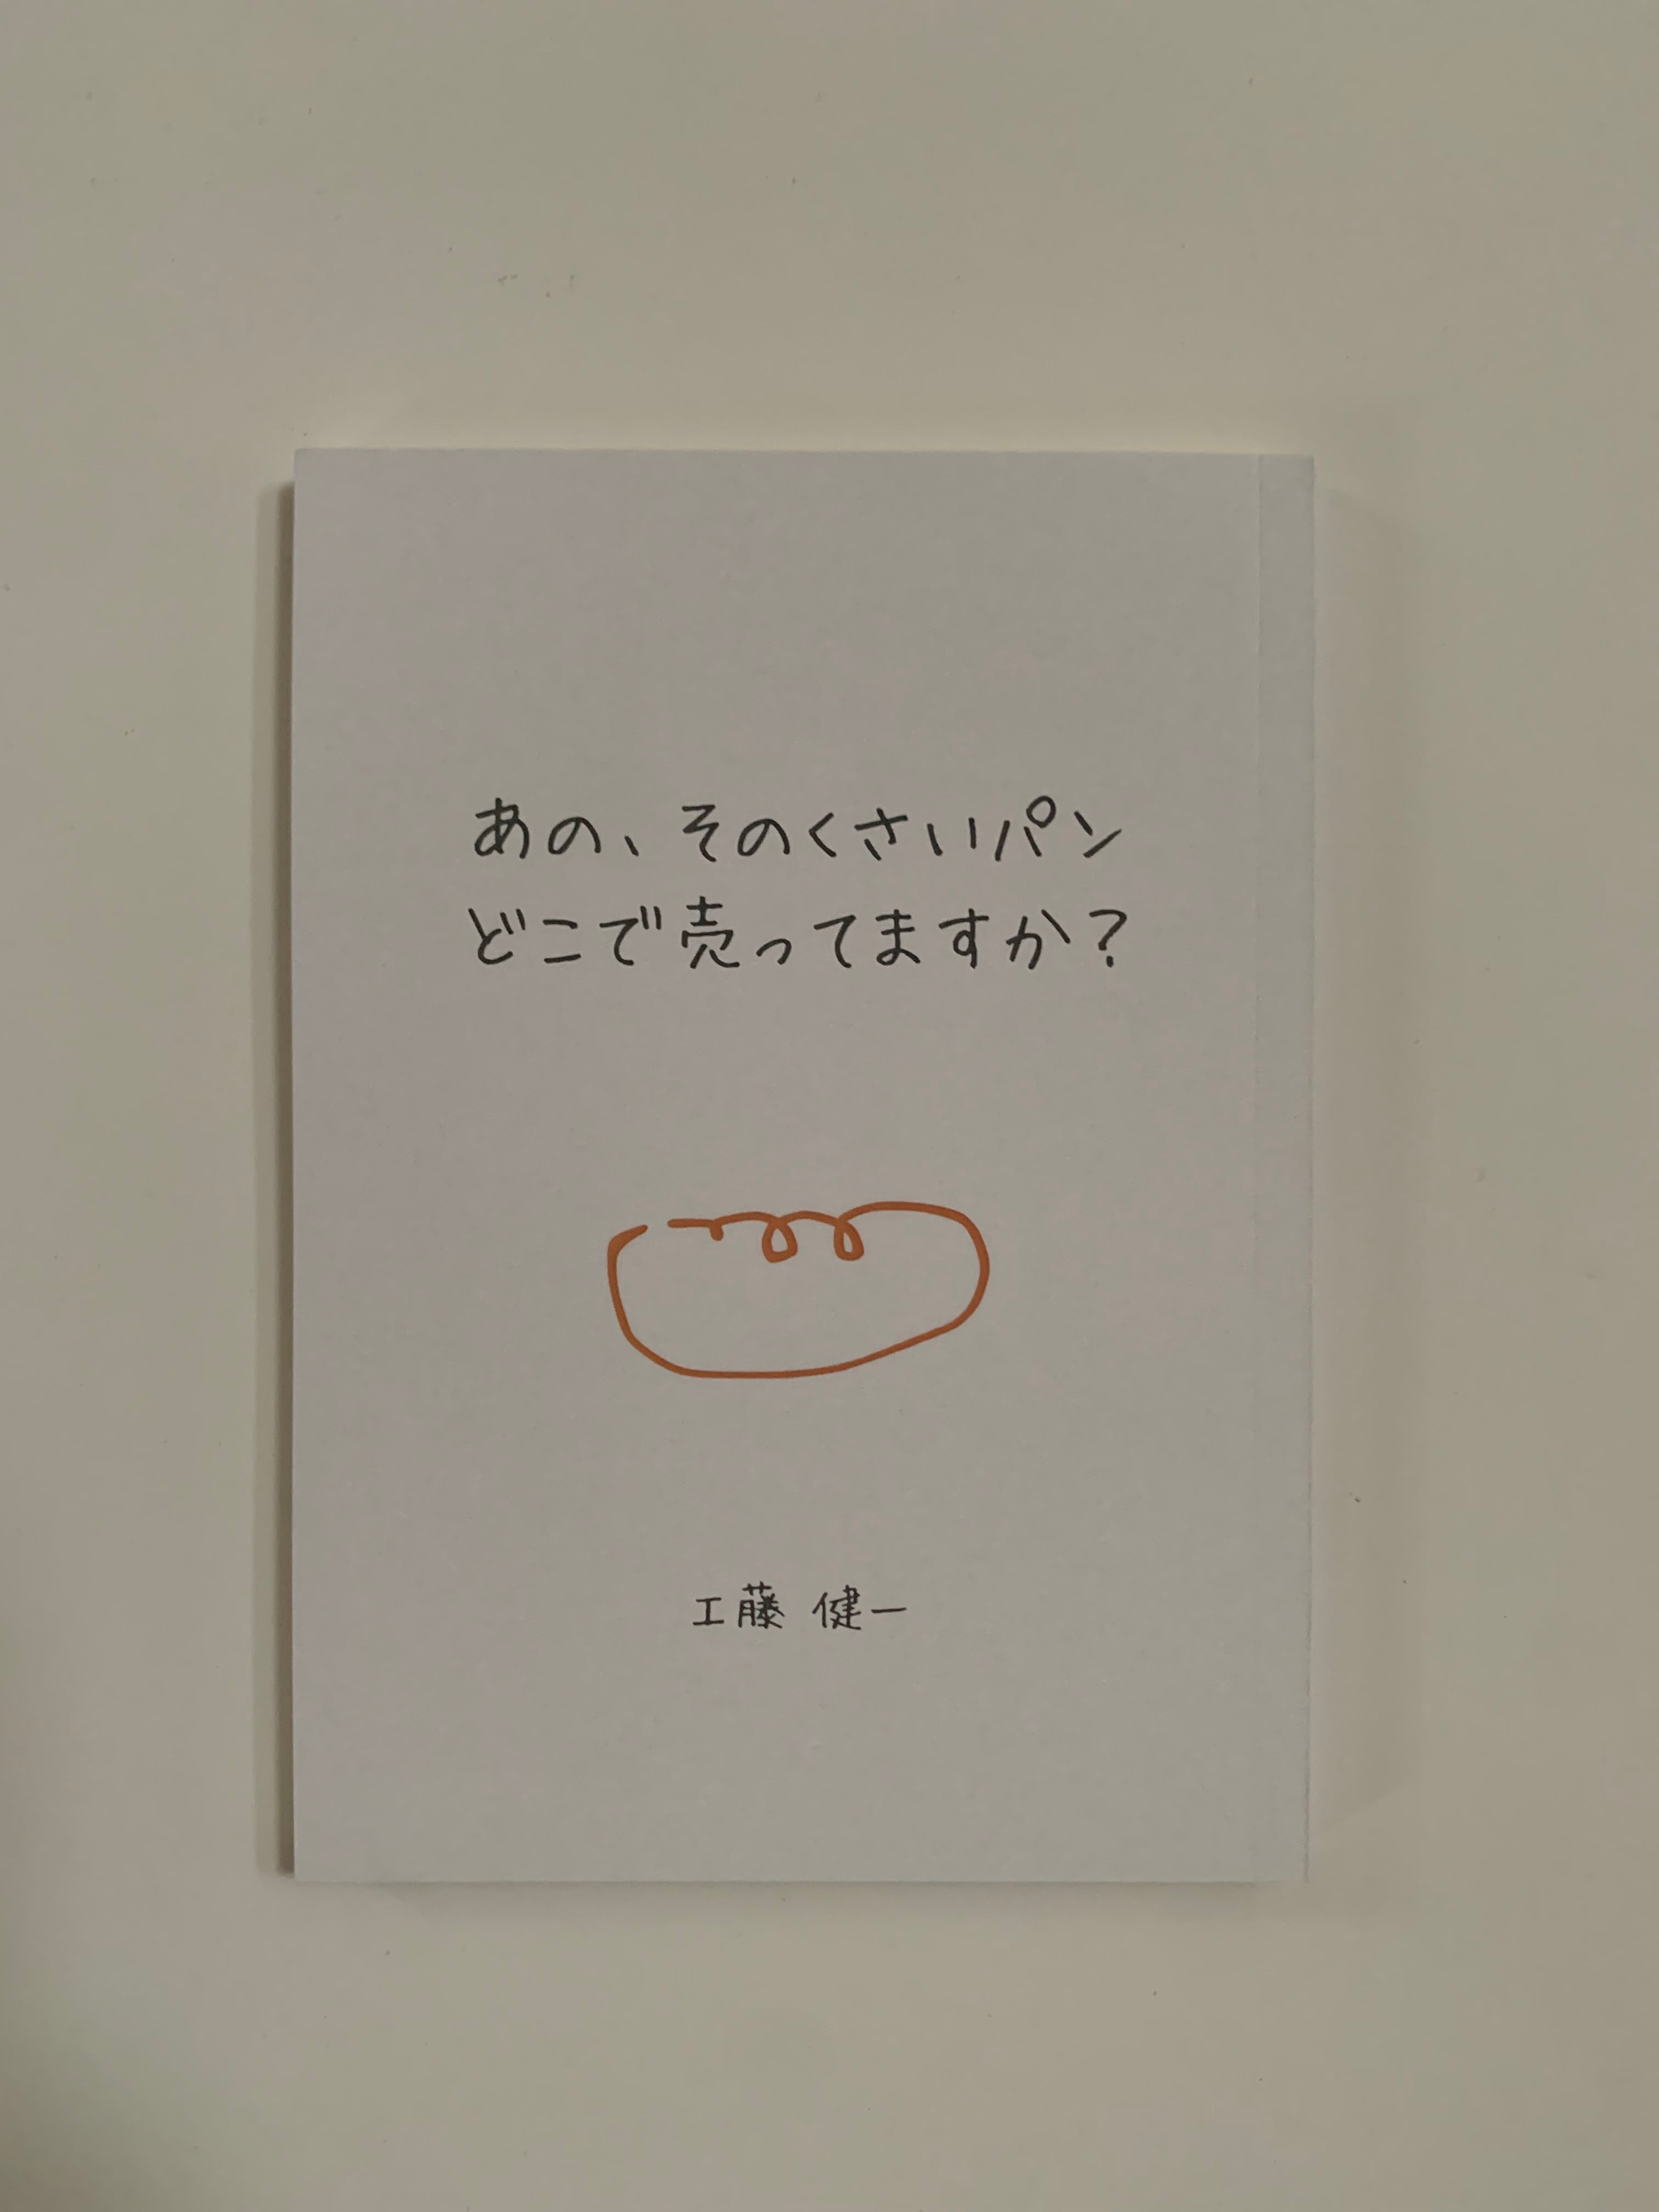 あの、そのくさいパン
どこで売ってますか?
工藤 健一